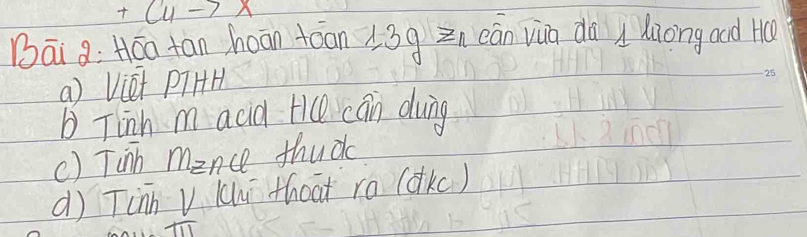 + Cu -> X
Bài 2: Hòa tan hoàn toàn 13g Zn cần vừa đủ 1 lượng acid HCl
a) Viết PTHH
b Tính m acid HCl cần dùng
c) Tính mZnCl thu đc
d) Tính V khí thoát ra (đkc)
25
III